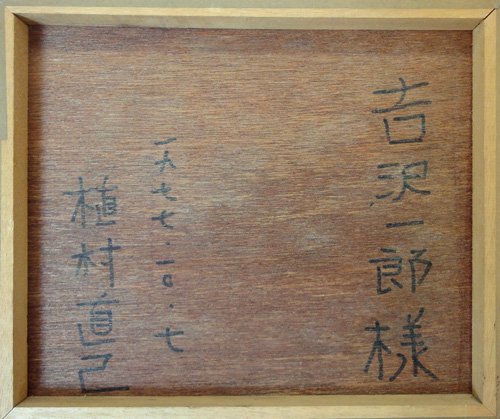 吉沢一郎様
一九七七・一〇・七
植村直己